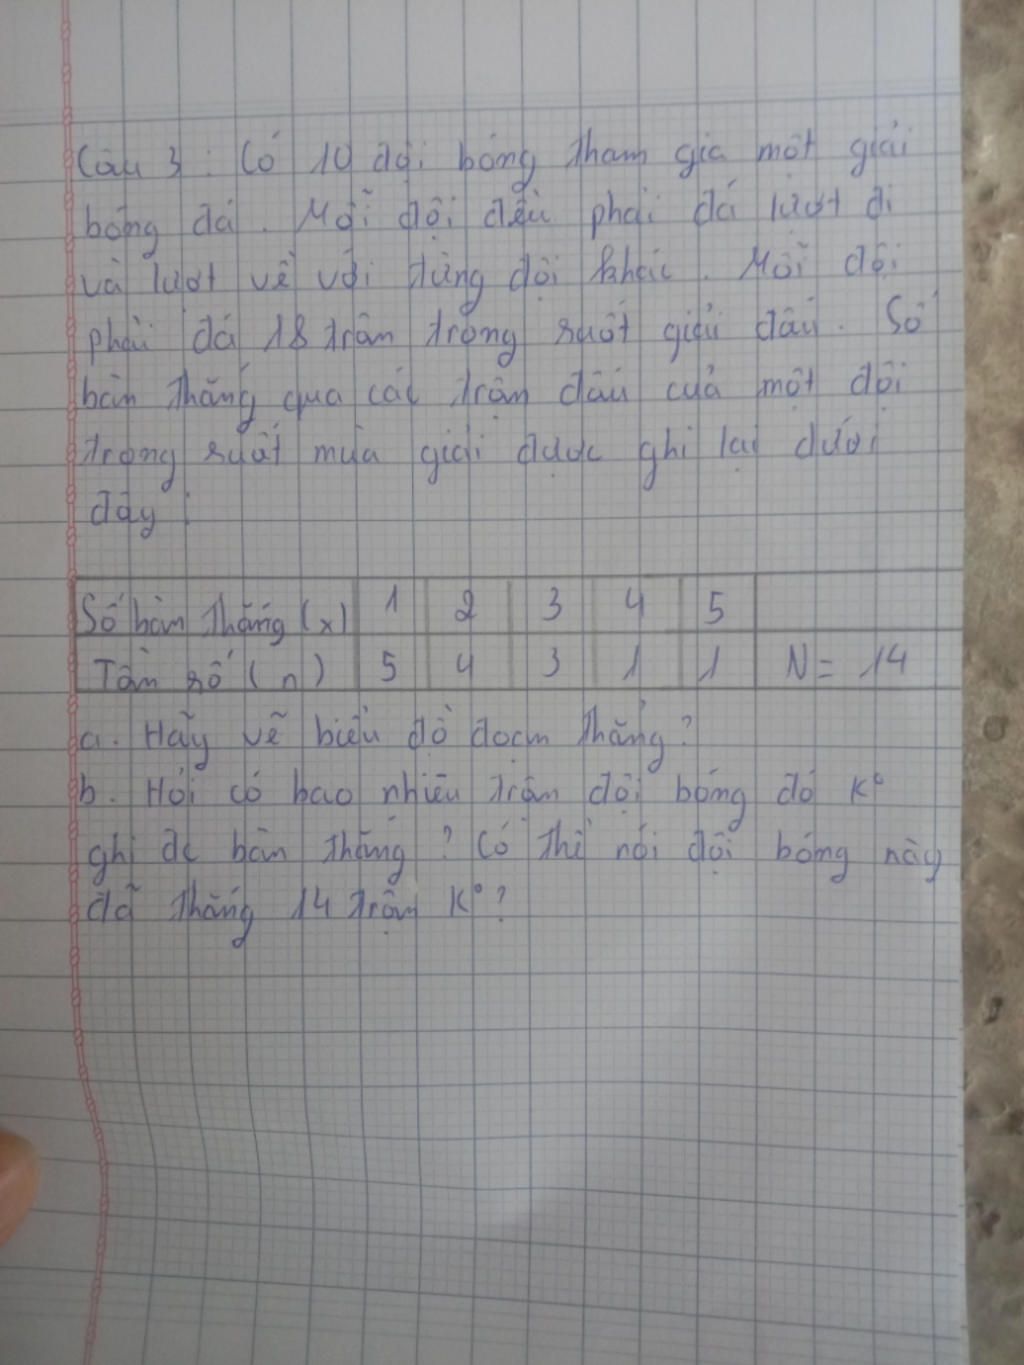 Câu 3 : Có 10 đội bóng tham gia một giải
bóng đá . Mỗi đội đều phải đá lượt đi
và lượt về với từng đội khác . Mỗi đội
phải đá 18 trận trong suốt giải đấu . Số
bàn thắng qua các trận đấu của một đội
trong suốt mùa giải được ghi lại dưới
đây :
Số bàn thắng (x) 1 2 3 4 5
Tần số (n) 5 4 3 1 1 N = 14
a. Hãy vẽ biểu đồ đoạn thẳng ?
b. Hỏi có bao nhiêu trận đội bóng đó K°
ghi đc bàn thắng ? Có thể nói đội bóng này
đã thắng 14 trận K° ?